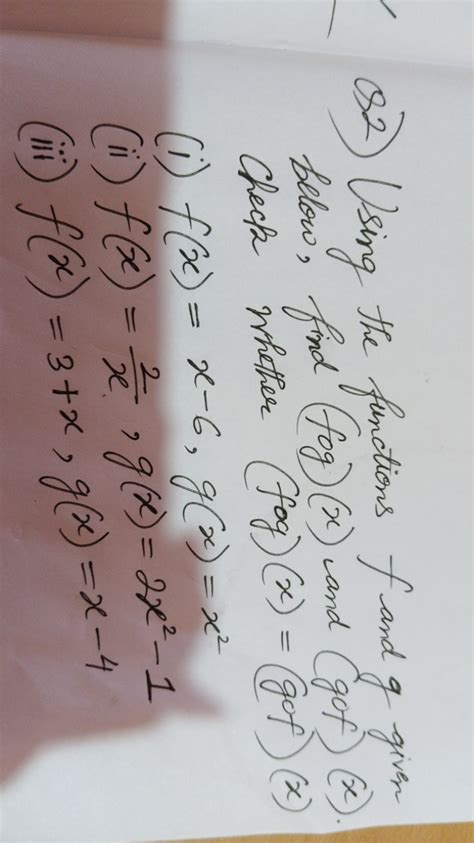 Q2) Using the functions f and g given
below, find (fog)(x) and (gof)(x).
Check whether (fog)(x) = (gof)(x)
(i) f(x) = x-6, g(x) = x²
(ii) f(x) = 2/x, g(x) = 2x²-1
(iii) f(x) = 3+x, g(x) = x-4